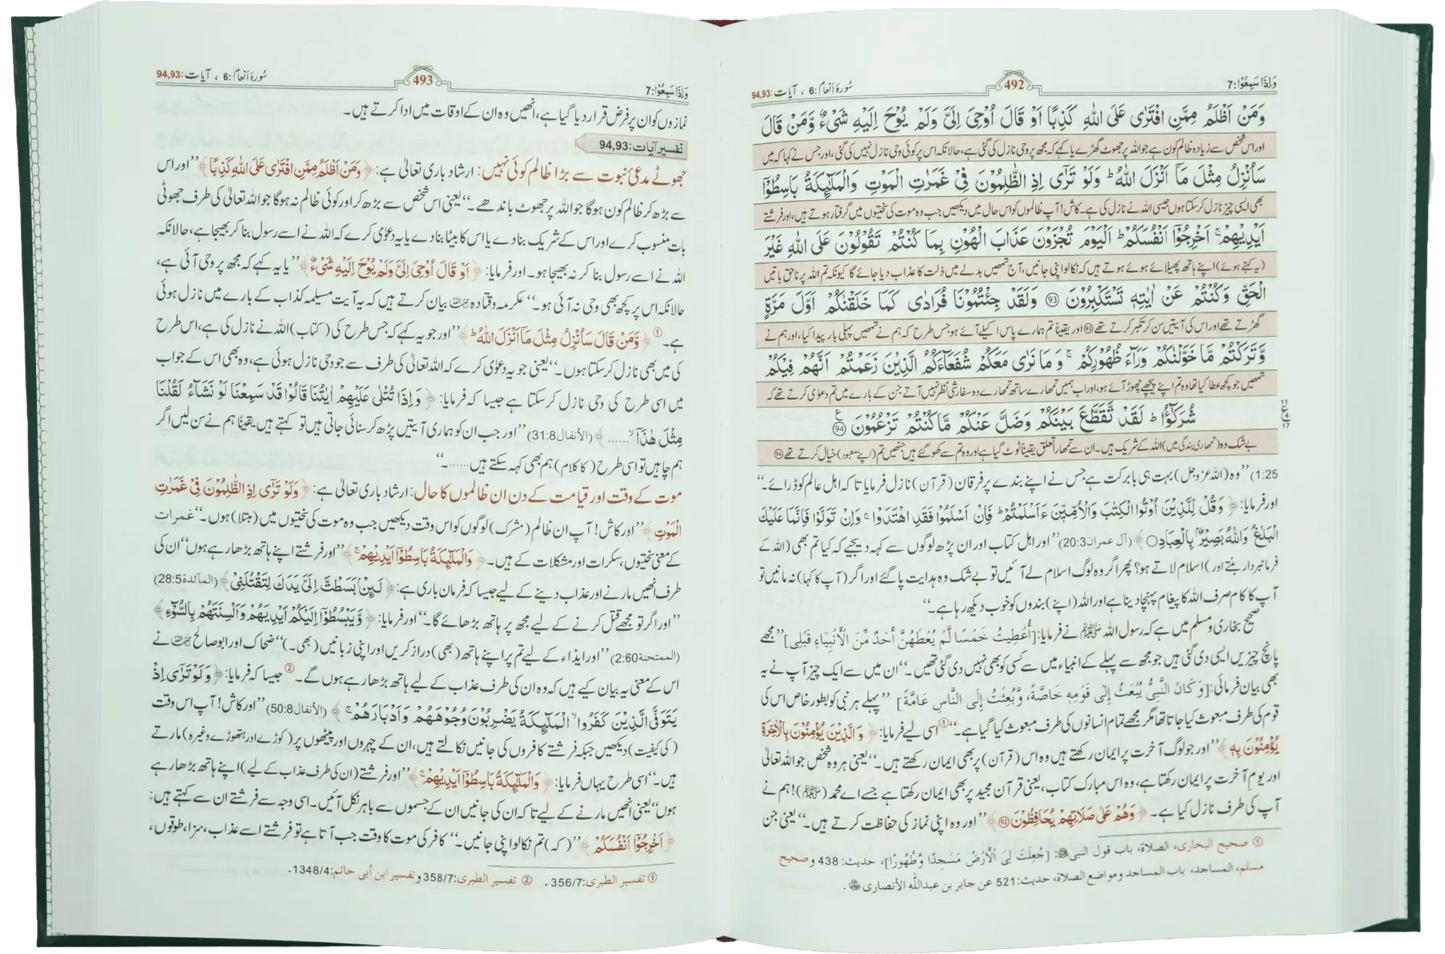 وَاِذَا سَمِعُوْا:7
492
سُورَۂ اَنعَام :6 ، آیات:94,93
وَمَنْ اَظْلَمُ مِمَّنِ افْتَرٰى عَلَى اللّٰهِ كَذِبًا اَوْ قَالَ اُوْحِيَ اِلَيَّ وَلَمْ يُوْحَ اِلَيْهِ شَيْءٌ وَّمَنْ قَالَ
اور اس شخص سے زیادہ ظالم کون ہے جو اللہ پر جھوٹ گھڑے یا کہے کہ مجھ پر وحی نازل کی گئی ہے، حالانکہ اس پر کوئی وحی نازل نہیں کی گئی، اور جس نے کہا کہ میں
سَاُنْزِلُ مِثْلَ مَآ اَنْزَلَ اللّٰهُ ؕ وَلَوْ تَرٰٓى اِذِ الظّٰلِمُوْنَ فِيْ غَمَرٰتِ الْمَوْتِ وَالْمَلٰٓئِكَةُ بَاسِطُوْٓا
بھی ایسی چیز نازل کر سکتا ہوں جیسی اللہ نے نازل کی ہے۔ کاش! آپ ظالموں کو اس حال میں دیکھیں جب وہ موت کی سختیوں میں گرفتار ہوتے ہیں، اور فرشتے
اَيْدِيْهِمْ ۚ اَخْرِجُوْٓا اَنْفُسَكُمْ ؕ اَلْيَوْمَ تُجْزَوْنَ عَذَابَ الْهُوْنِ بِمَا كُنْتُمْ تَقُوْلُوْنَ عَلَى اللّٰهِ غَيْرَ
(یہ کہتے ہوئے) اپنے ہاتھ پھیلائے ہوئے ہوتے ہیں کہ نکالو اپنی جانیں، آج تمھیں بدلے میں ذلت کا عذاب دیا جائے گا کیونکہ تم اللہ پر ناحق باتیں
الْحَقِّ وَكُنْتُمْ عَنْ اٰيٰتِهٖ تَسْتَكْبِرُوْنَ ﴿93﴾ وَلَقَدْ جِئْتُمُوْنَا فُرَادٰى كَمَا خَلَقْنٰكُمْ اَوَّلَ مَرَّةٍ
گھڑتے تھے اور اس کی آیتیں سن کر تکبر کرتے تھے ﴿93﴾ اور یقینًا تم ہمارے پاس اکیلے آئے ہو جس طرح کہ ہم نے تمھیں پہلی بار پیدا کیا، اور ہم نے
وَّتَرَكْتُمْ مَّا خَوَّلْنٰكُمْ وَرَآءَ ظُهُوْرِكُمْ ۚ وَمَا نَرٰى مَعَكُمْ شُفَعَآءَكُمُ الَّذِيْنَ زَعَمْتُمْ اَنَّهُمْ فِيْكُمْ
تمھیں جو کچھ عطا کیا تھا وہ تم اپنے پیچھے چھوڑ آئے ہو، اور ہمیں تمھارے ساتھ تمھارے وہ سفارشی نظر نہیں آتے جن کے بارے میں تم دعویٰ کرتے تھے کہ
شُرَكٰٓؤُا ؕ لَقَدْ تَّقَطَّعَ بَيْنَكُمْ وَضَلَّ عَنْكُمْ مَّا كُنْتُمْ تَزْعُمُوْنَ ﴿94﴾
بے شک وہ (تمھاری بندگی میں) اللہ کے شریک ہیں۔ ان سے تمھارا تعلق یقینًا ٹوٹ گیا ہے اور وہ تم سے کھو گئے ہیں جنھیں تم (اپنے معبود) خیال کرتے تھے ﴿94﴾
1:25) ’’وہ (اللہ عزوجل) بہت ہی بابرکت ہے جس نے اپنے بندے پر فرقان (قرآن) نازل فرمایا تاکہ اہل عالم کو ڈرائے۔‘‘
اور فرمایا: ﴿ وَقُلْ لِّلَّذِيْنَ اُوْتُوا الْكِتٰبَ وَالْاُمِّيّٖنَ ءَاَسْلَمْتُمْ ؕ فَاِنْ اَسْلَمُوْا فَقَدِ اهْتَدَوْا ۚ وَاِنْ تَوَلَّوْا فَاِنَّمَا عَلَيْكَ
الْبَلٰغُ ؕ وَاللّٰهُ بَصِيْرٌۢ بِالْعِبَادِ ○ ﴾ (آل عمران 20:3) ’’اور اہل کتاب اور ان پڑھ لوگوں سے کہہ دیجیے کہ کیا تم بھی (اللہ کے
فرمانبردار بنتے اور) اسلام لاتے ہو؟ پھر اگر وہ لوگ اسلام لے آئیں تو بے شک وہ ہدایت پا گئے اور اگر (آپ کا کہا) نہ مانیں تو
آپ کا کام صرف اللہ کا پیغام پہنچا دینا ہے اور اللہ (اپنے) بندوں کو خوب دیکھ رہا ہے۔‘‘
صحیح بخاری و مسلم میں ہے کہ رسول اللہ ﷺ نے فرمایا: [أُعْطِيتُ خَمْسًا لَمْ يُعْطَهُنَّ أَحَدٌ مِّنَ الْأَنْبِيَاءِ قَبْلِي] ’’مجھے
پانچ چیزیں ایسی دی گئی ہیں جو مجھ سے پہلے کے انبیاء میں سے کسی کو بھی نہیں دی گئی تھیں۔‘‘ ان میں سے ایک چیز آپ نے یہ
بھی بیان فرمائی: [وَكَانَ النَّبِيُّ يُبْعَثُ إِلٰى قَوْمِهٖ خَاصَّةً، وَّبُعِثْتُ إِلَى النَّاسِ عَامَّةً] ’’پہلے ہر نبی کو بطور خاص اس کی
قوم کی طرف مبعوث کیا جاتا تھا مگر مجھے تمام انسانوں کی طرف مبعوث کیا گیا ہے۔‘‘① اسی لیے فرمایا: ﴿ وَالَّذِيْنَ يُؤْمِنُوْنَ بِالْاٰخِرَةِ
يُؤْمِنُوْنَ بِهٖ ﴾ ’’اور جو لوگ آخرت پر ایمان رکھتے ہیں وہ اس (قرآن) پر بھی ایمان رکھتے ہیں۔‘‘ یعنی ہر وہ شخص جو اللہ تعالیٰ
اور یوم آخرت پر ایمان رکھتا ہے، وہ اس مبارک کتاب، یعنی قرآن مجید پر بھی ایمان رکھتا ہے جسے اے محمد (ﷺ)! ہم نے
آپ کی طرف نازل کیا ہے۔ ﴿ وَهُمْ عَلٰى صَلَاتِهِمْ يُحَافِظُوْنَ ﴾ ’’اور وہ اپنی نماز کی حفاظت کرتے ہیں۔‘‘ یعنی جن
① صحيح البخاري، الصلاة، باب قول النبي ﷺ: [جُعِلَتْ لِيَ الْأَرْضُ مَسْجِدًا وَّطَهُورًا]، حديث: 438 و صحيح
مسلم، المساجد، باب المساجد ومواضع الصلاة، حديث: 521 عن جابر بن عبدالله الأنصاري
وَاِذَا سَمِعُوْا:7
493
سُورَۂ اَنعَام :6 ، آیات:94,93
نمازوں کو ان پر فرض قرار دیا گیا ہے، انھیں وہ ان کے اوقات میں ادا کرتے ہیں۔
تفسیر آیات:94,93
جھوٹے مدعئ نبوت سے بڑا ظالم کوئی نہیں: ارشاد باری تعالیٰ ہے: ﴿ وَمَنْ اَظْلَمُ مِمَّنِ افْتَرٰى عَلَى اللّٰهِ كَذِبًا ﴾ ’’اور اس
سے بڑھ کر ظالم کون ہوگا جو اللہ پر جھوٹ باندھے۔‘‘ یعنی اس شخص سے بڑھ کر اور کوئی ظالم نہ ہوگا جو اللہ تعالیٰ کی طرف جھوٹی
بات منسوب کرے اور اس کے شریک بنا دے یا اس کا بیٹا بنا دے یا یہ دعویٰ کرے کہ اللہ نے اسے رسول بنا کر بھیجا ہے، حالانکہ
اللہ نے اسے رسول بنا کر نہ بھیجا ہو۔ اور فرمایا: ﴿ اَوْ قَالَ اُوْحِيَ اِلَيَّ وَلَمْ يُوْحَ اِلَيْهِ شَيْءٌ ﴾ ’’یا یہ کہے کہ مجھ پر وحی آئی ہے،
حالانکہ اس پر کچھ بھی وحی نہ آئی ہو۔‘‘ عکرمہ و قتادہ بیان کرتے ہیں کہ یہ آیت مسیلمہ کذاب کے بارے میں نازل ہوئی
ہے۔① ﴿ وَّمَنْ قَالَ سَاُنْزِلُ مِثْلَ مَآ اَنْزَلَ اللّٰهُ ﴾ ’’اور جو یہ کہے کہ جس طرح کی (کتاب) اللہ نے نازل کی ہے، اس طرح
کی میں بھی نازل کر سکتا ہوں۔‘‘ یعنی جو یہ دعویٰ کرے کہ اللہ تعالیٰ کی طرف سے جو وحی نازل ہوئی ہے، وہ بھی اس کے جواب
میں اسی طرح کی وحی نازل کر سکتا ہے جیسا کہ فرمایا: ﴿ وَاِذَا تُتْلٰى عَلَيْهِمْ اٰيٰتُنَا قَالُوْا قَدْ سَمِعْنَا لَوْ نَشَآءُ لَقُلْنَا
مِثْلَ هٰذَآ ۙ …… ﴾ (الأنفال 31:8) ’’اور جب ان کو ہماری آیتیں پڑھ کر سنائی جاتی ہیں تو کہتے ہیں یقینًا ہم نے سن لیں اگر
ہم چاہیں تو اسی طرح (کا کلام) ہم بھی کہہ سکتے ہیں……۔‘‘
موت کے وقت اور قیامت کے دن ان ظالموں کا حال: ارشاد باری تعالیٰ ہے: ﴿ وَلَوْ تَرٰٓى اِذِ الظّٰلِمُوْنَ فِيْ غَمَرٰتِ
الْمَوْتِ ﴾ ’’اور کاش! آپ ان ظالم (مشرک) لوگوں کو اس وقت دیکھیں جب وہ موت کی سختیوں میں (مبتلا) ہوں۔‘‘ غمرات
کے معنی سختیوں، سکرات اور مشکلات کے ہیں۔ ﴿ وَالْمَلٰٓئِكَةُ بَاسِطُوْٓا اَيْدِيْهِمْ ۚ ﴾ ’’اور فرشتے اپنے ہاتھ بڑھا رہے ہوں‘‘ ان کی
طرف انھیں مارنے اور عذاب دینے کے لیے جیسا کہ فرمان باری ہے: ﴿ لَئِنْۢ بَسَطْتَّ اِلَيَّ يَدَكَ لِتَقْتُلَنِيْ ﴾ (المآئدة 28:5)
’’اور اگر تو مجھے قتل کرنے کے لیے مجھ پر ہاتھ بڑھائے گا۔‘‘ اور فرمایا: ﴿ وَّيَبْسُطُوْٓا اِلَيْكُمْ اَيْدِيَهُمْ وَاَلْسِنَتَهُمْ بِالسُّوْٓءِ ﴾
(الممتحنة 2:60) ’’اور ایذاء کے لیے تم پر اپنے ہاتھ (بھی) دراز کریں اور اپنی زبانیں (بھی)۔‘‘ ضحاک اور ابوصالح نے
اس کے معنی یہ بیان کیے ہیں کہ وہ ان کی طرف عذاب کے لیے ہاتھ بڑھا رہے ہوں گے۔② جیسا کہ فرمایا: ﴿ وَلَوْ تَرٰٓى اِذْ
يَتَوَفَّى الَّذِيْنَ كَفَرُوا ۙ الْمَلٰٓئِكَةُ يَضْرِبُوْنَ وُجُوْهَهُمْ وَاَدْبَارَهُمْ ۚ ﴾ (الأنفال 50:8) ’’اور کاش! آپ اس وقت
(کی کیفیت) دیکھیں جبکہ فرشتے کافروں کی جانیں نکالتے ہیں، ان کے چہروں اور پیٹھوں پر (کوڑے اور ہتھوڑے وغیرہ) مارتے
ہیں۔‘‘ اسی طرح یہاں فرمایا: ﴿ وَالْمَلٰٓئِكَةُ بَاسِطُوْٓا اَيْدِيْهِمْ ۚ ﴾ ’’اور فرشتے (ان کی طرف عذاب کے لیے) اپنے ہاتھ بڑھا رہے
ہوں‘‘ یعنی انھیں مارنے کے لیے تاکہ ان کی جانیں ان کے جسموں سے باہر نکل آئیں۔ اسی وجہ سے فرشتے ان سے کہتے ہیں:
﴿ اَخْرِجُوْٓا اَنْفُسَكُمْ ﴾ ’’(کہ) تم نکالو اپنی جانیں۔‘‘ کافر کی موت کا وقت جب آتا ہے تو فرشتے اسے عذاب، سزا، طوقوں،
① تفسير الطبري: 356/7. ② تفسير الطبري: 358/7 و تفسير ابن أبي حاتم: 1348/4.